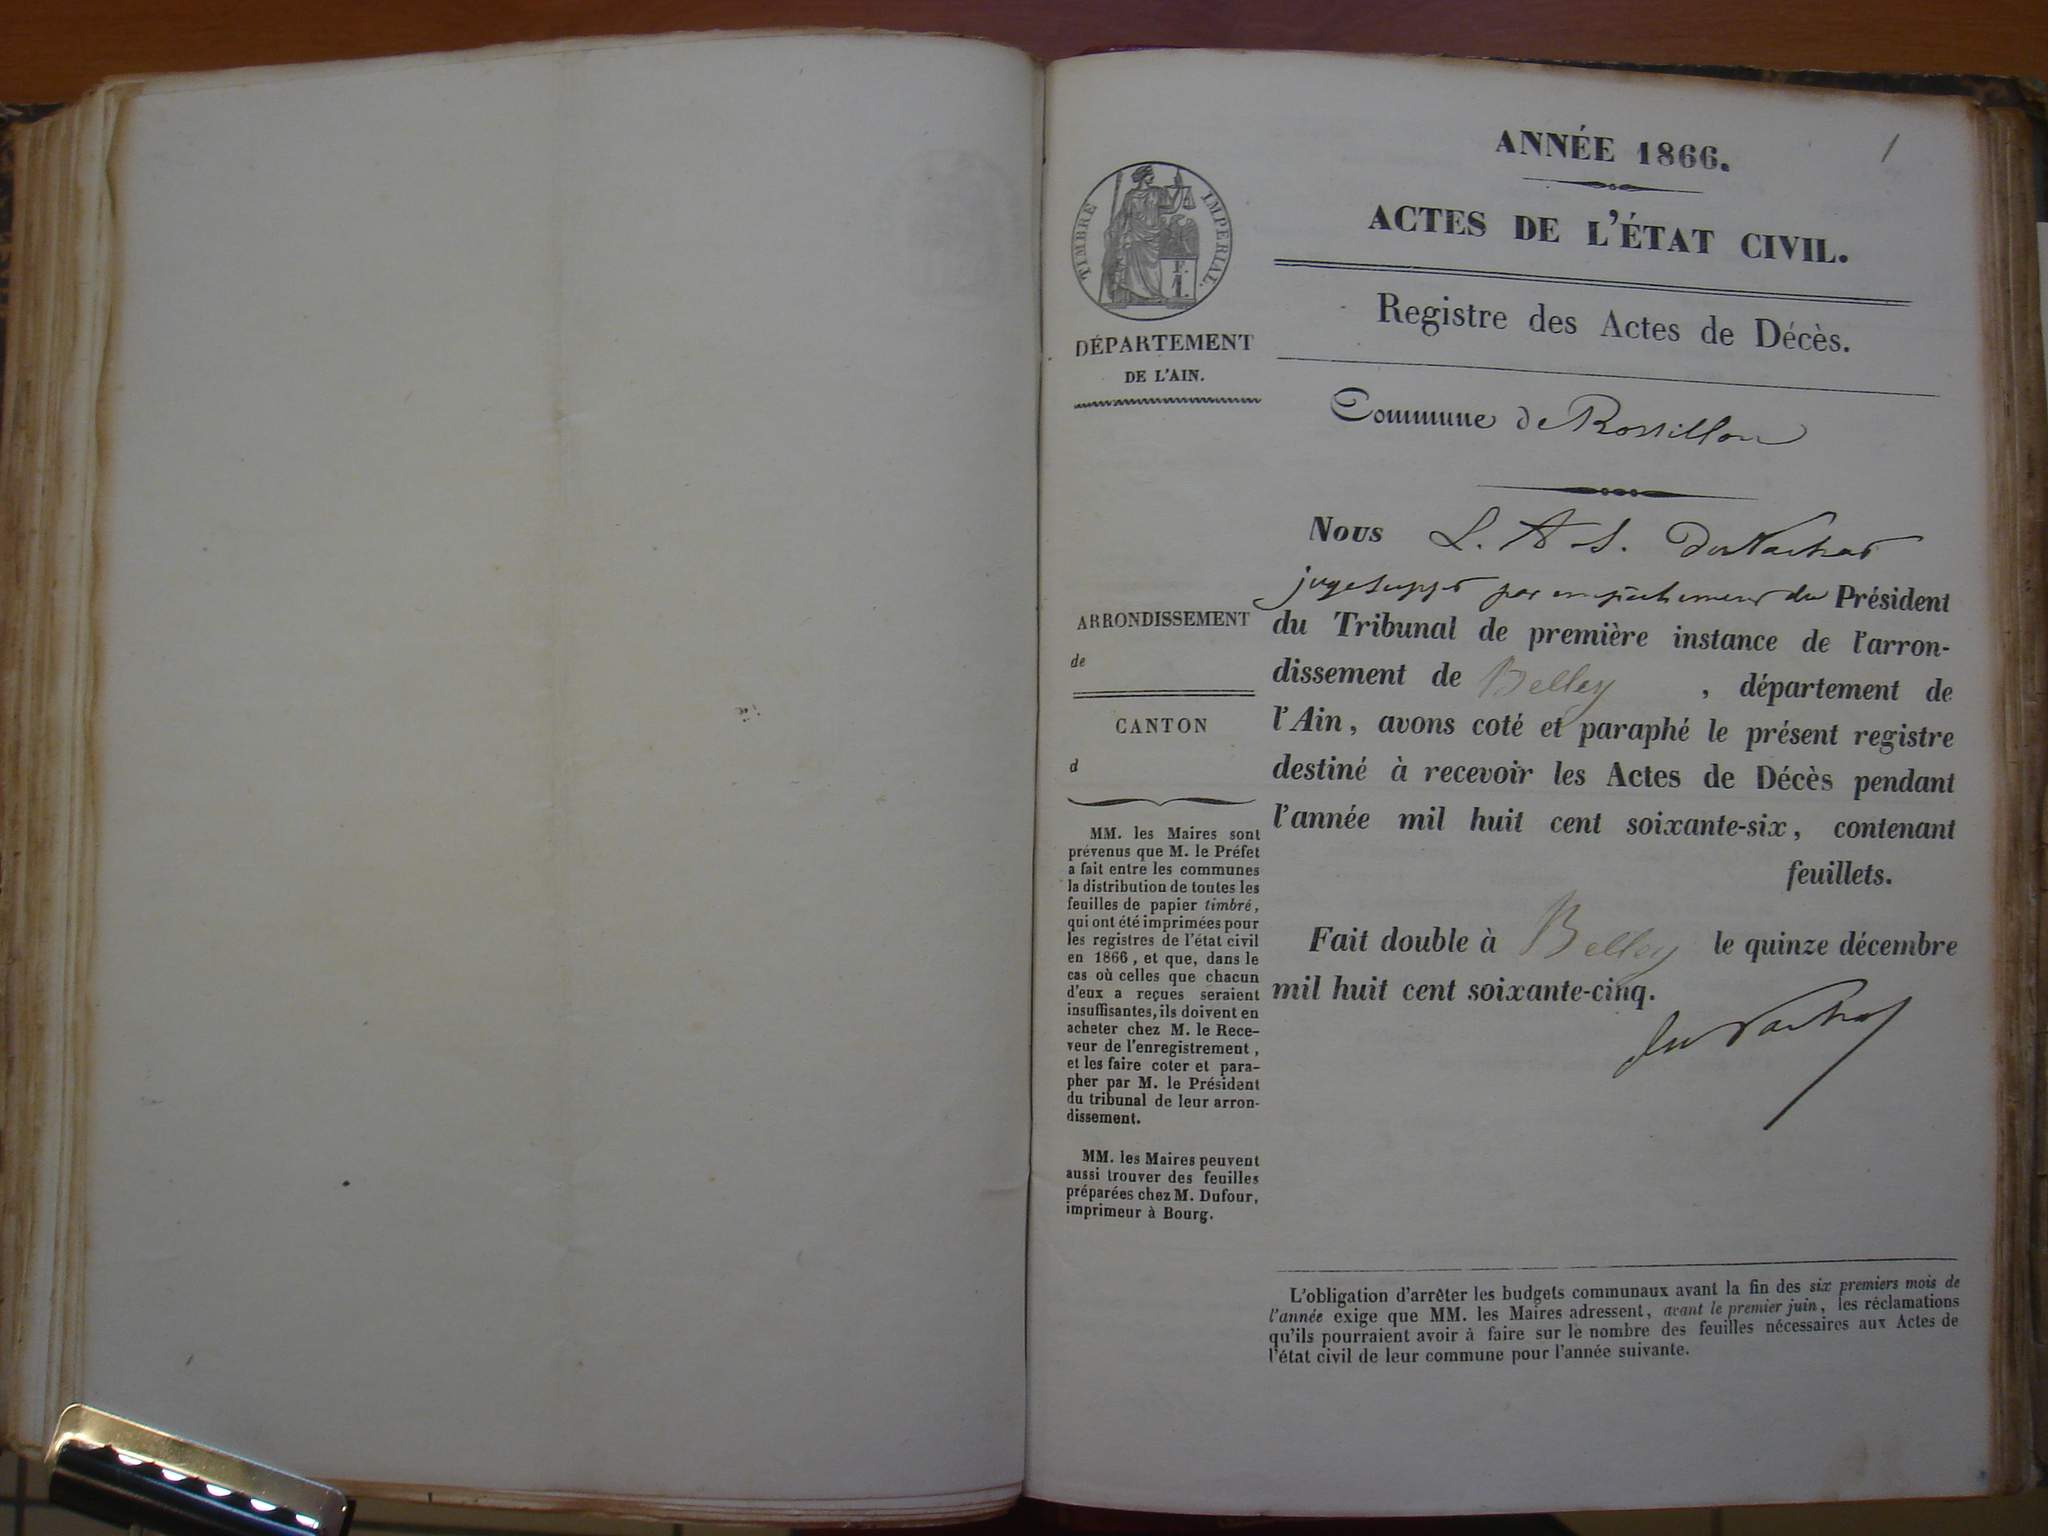 1
ANNÉE 1866.
ACTES DE L'ÉTAT CIVIL.
Registre des Actes de Décès.
Commune de Rossillon
TIMBRE IMPERIAL.
F.
1.
DÉPARTEMENT
DE L'AIN.
ARRONDISSEMENT
de
CANTON
d
MM. les Maires sont
prévenus que M. le Préfet
a fait entre les communes
la distribution de toutes les
feuilles de papier timbré,
qui ont été imprimées pour
les registres de l'état civil
en 1866, et que, dans le
cas où celles que chacun
d'eux a reçues seraient
insuffisantes, ils doivent en
acheter chez M. le Rece-
veur de l'enregistrement,
et les faire coter et para-
pher par M. le Président
du tribunal de leur arron-
dissement.
MM. les Maires peuvent
aussi trouver des feuilles
préparées chez M. Dufour,
imprimeur à Bourg.
Nous L. A. S.
juge suppt par empêchement du Président
du Tribunal de première instance de l'arron-
dissement de Belley, département de
l'Ain, avons coté et paraphé le présent registre
destiné à recevoir les Actes de Décès pendant
l'année mil huit cent soixante-six, contenant
feuillets.
Fait double à Belley le quinze décembre
mil huit cent soixante-cinq.
L'obligation d'arrêter les budgets communaux avant la fin des six premiers mois de
l'année exige que MM. les Maires adressent, avant le premier juin, les réclamations
qu'ils pourraient avoir à faire sur le nombre des feuilles nécessaires aux Actes de
l'état civil de leur commune pour l'année suivante.